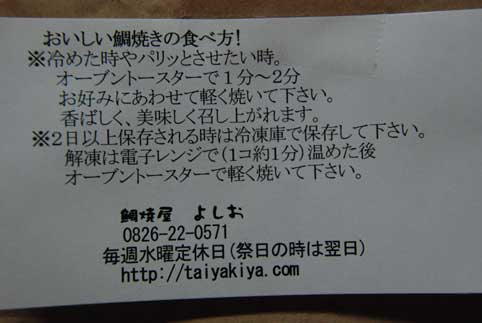 おいしい鯛焼きの食べ方!
※冷めた時やパリッとさせたい時。
オーブントースターで1分～2分
お好みにあわせて軽く焼いて下さい。
香ばしく、美味しく召し上がれます。
※2日以上保存される時は冷凍庫で保存して下さい。
解凍は電子レンジで(1コ約1分)温めた後
オーブントースターで軽く焼いて下さい。
鯛焼屋 よしお
0826-22-0571
毎週水曜定休日(祭日の時は翌日)
http://taiyakiya.com